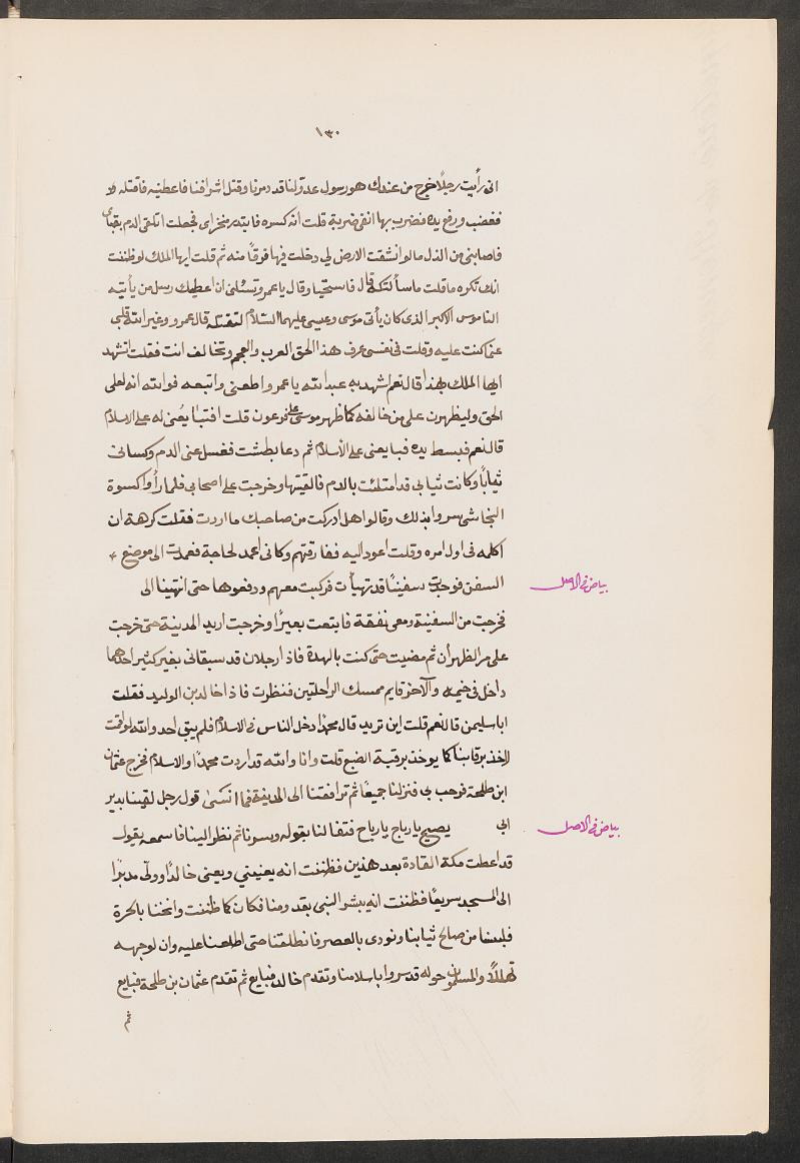 ١٣٠
انى رأيت رجلًا خرج من عندك هو رسول عدوّ لنا قد دمرنا وقتل اشرافنا فاعطنيه فاقتله
فغضب ورفع يده فضرب بها انفى ضربة قلت انه كسره فابتدر منخراى فجعلت اتلقى الدم بثيابى
فاصابنى من الذل ما لو انشقت الارض لى دخلت فيها فرقًا منه ثم قلت ايها الملك لو ظننت
انك تكره ما قلت ما سألتكه قال فاستحيا وقال يا عمرو تسئلنى ان اعطيك رسل من يأتيه
الناموس الاكبر الذى كان يأتى موسى وعيسى عليهما السّلام لتقتله قال عمرو وغير الله قلبى
عما كنت عليه وقلت فى نفسى عرف هذا الحق العرب والعجم وتخالف انت فقلت اتشهد
ايها الملك بهذا قال نعم اشهد به عبد الله يا عمرو اطعنى واتبعه فوالله انه لعلى
الحق وليظهرن على من خالفه كما ظهر موسى على فرعون قلت افتبايعُنى له على الاسلام
قال نعم فبسط يده فبايعنى على الأسلام ثم دعا بطشت فغسل عنى الدم وكسانى
ثيابًا وكانت ثيابى قد امتلئت بالدم فالقيتها وخرجت على اصحابى فلما رأوا كسوة
النجاشى سروا بذلك وقالوا هل ادركت من صاحبك ما اردت فقلت كرهت ان
اكلمه فى اول امره وقلت اعود اليه ففارقتهم وكانى اعمد لحاجة فعمدت الى موضع
السفن فوجدت سفينًا قد تهيأت فركبت معهم ودفعوها حتى انتهينا الى
بياض فى الاصل
فخرجت من السفينة ومعى نفقة فابتعت بعيرًا وخرجت اريد المدينة حتى خرجت
على مر الظهران ثم مضيت حتى كنت بالهدة فاذا رجلان قد سبقانى بغير كثير احدهما
داخل فى خيمه والآخر قايم ممسك الراحلتين فنظرت فاذا خالد بن الوليد فقلت
ابا سليمن قال نعم قلت اين تريد قال محمدًا دخل الناس فى الاسلام فلم يبق احد والله لو اقمت
لاخذ برقابنا كما يوخذ برقبة الضبع قلت وانا والله قد اردت محمدًا والاسلام فخرج عثمان
ابن طلحة فرحب بى فنزلنا جميعًا ثم ترافقنا الى المدينة فما انسىٰ قول رجل لقينا بدير
ابى يصيح يا رباح يا رباح فتفالنا بقوله وسرنا ثم نظر الينا فاسمعه يقول
بياض فى الاصل
قد اعطت مكة القادة بعد هذين فظننت انه يعنينى ويعنى خالدًا وولّى مدبرًا
الى المسجد سريعًا فظننت انه يبشر النبى بقدومنا فكان كما ظننت وانخنا بالحرة
فلبسنا من صالح ثيابنا ونودى بالعصر فانطلقنا حتى اطلعنا عليه وان لوجهه
تهللًا والمسلمون حوله قد سروا باسلامنا وتقدم خالد فبايع ثم تقدم عثمان بن طلحة فبايع
ثم